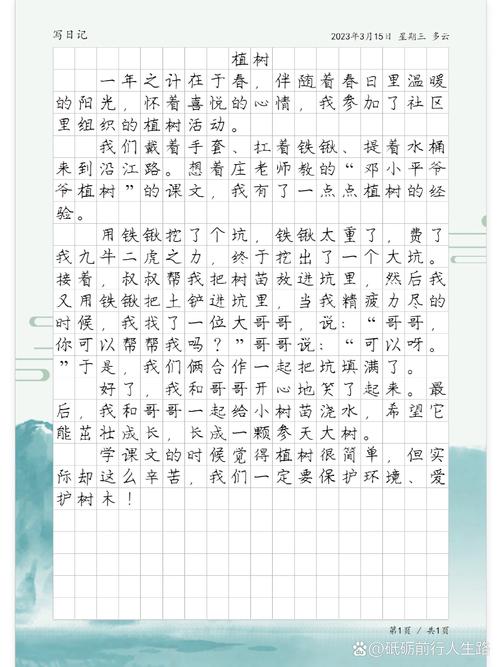 写日记
2023年3月15日 星期三 多云
植树
一年之计在于春，伴随着春日里温暖
的阳光，怀着喜悦的心情，我参加了社区
里组织的植树活动。
我们戴着手套、扛着铁锹、提着水桶
来到沿江路。想着庄老师教的“邓小平爷
爷植树”的课文，我有了一点点植树的经
验。
用铁锹挖了个坑，铁锹太重了，费了
我九牛二虎之力，终于挖出了一个大坑。
接着，叔叔帮我把树苗放进坑里，然后我
又用铁锹把土铲进坑里，当我精疲力尽的
时候，我找了一位大哥哥，说：“哥哥，
你可以帮帮我吗？”哥哥说：“可以呀。
”于是，我们俩合作一起把坑填满了。
好了，我和哥哥开心地笑了起来。最
后，我和哥哥一起给小树苗浇水，希望它
能茁壮成长，长成一颗参天大树。
学课文的时候觉得植树很简单，但实
际却这么辛苦，我们一定要保护环境、爱
护树木！
第1页 / 共1页
@砥砺前行人生路